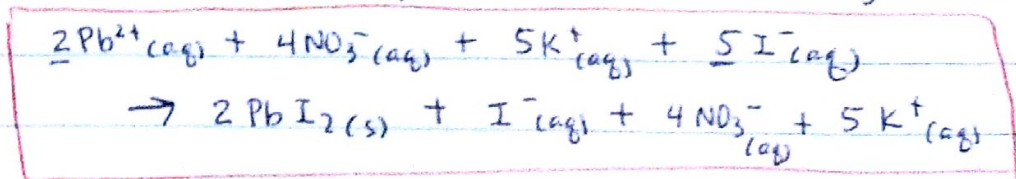 2Pb²⁺(aq) + 4NO₃⁻(aq) + 5K⁺(aq) + 5I⁻(aq)
→ 2PbI₂(s) + I⁻(aq) + 4NO₃⁻(aq) + 5K⁺(aq)